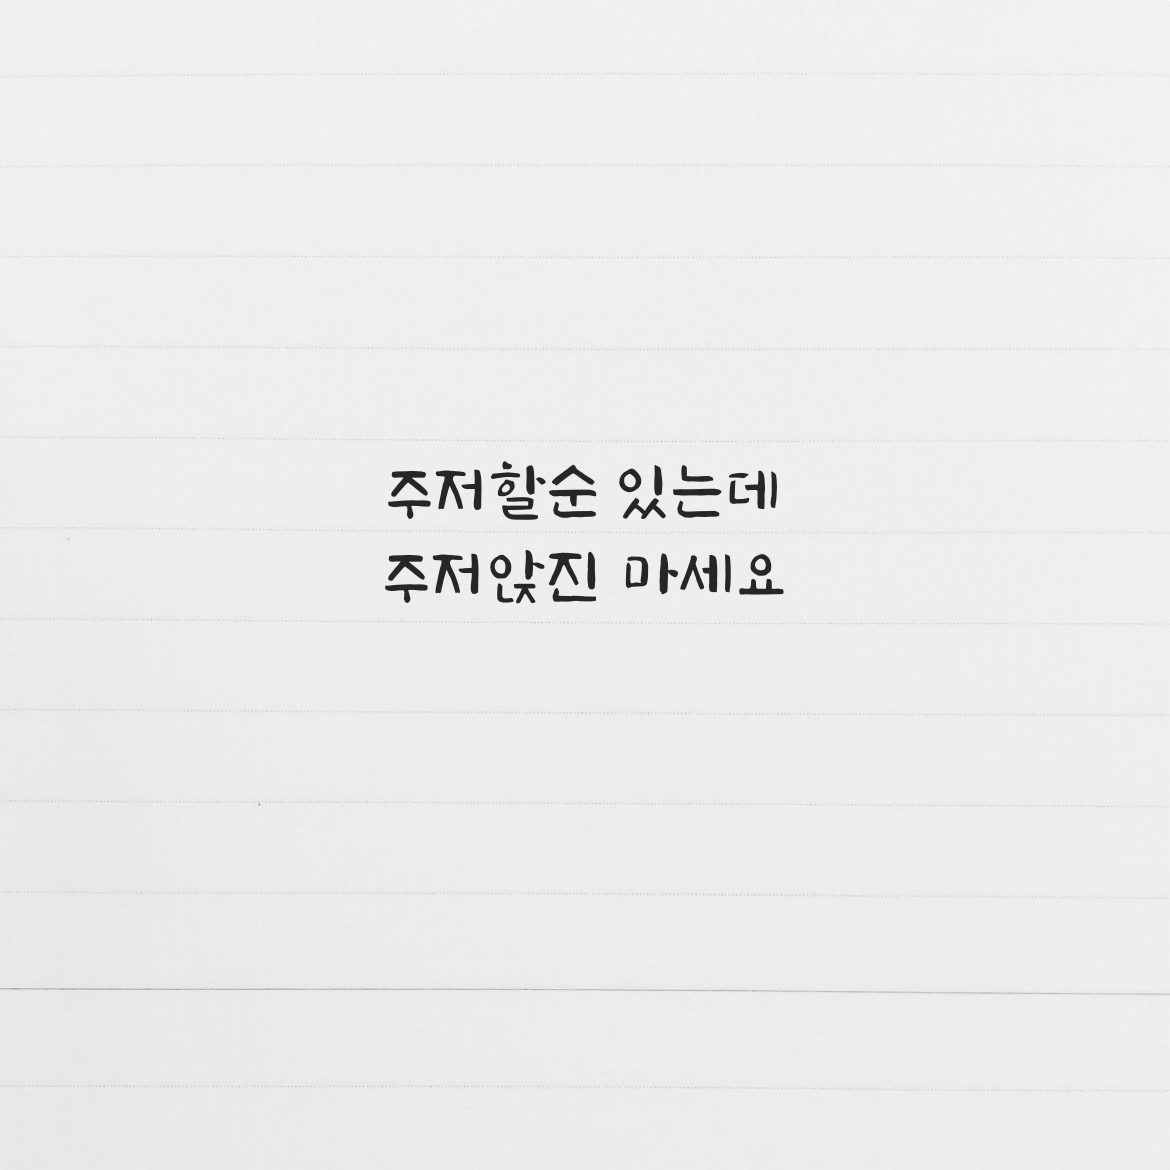 주저할순 있는데
주저앉진 마세요